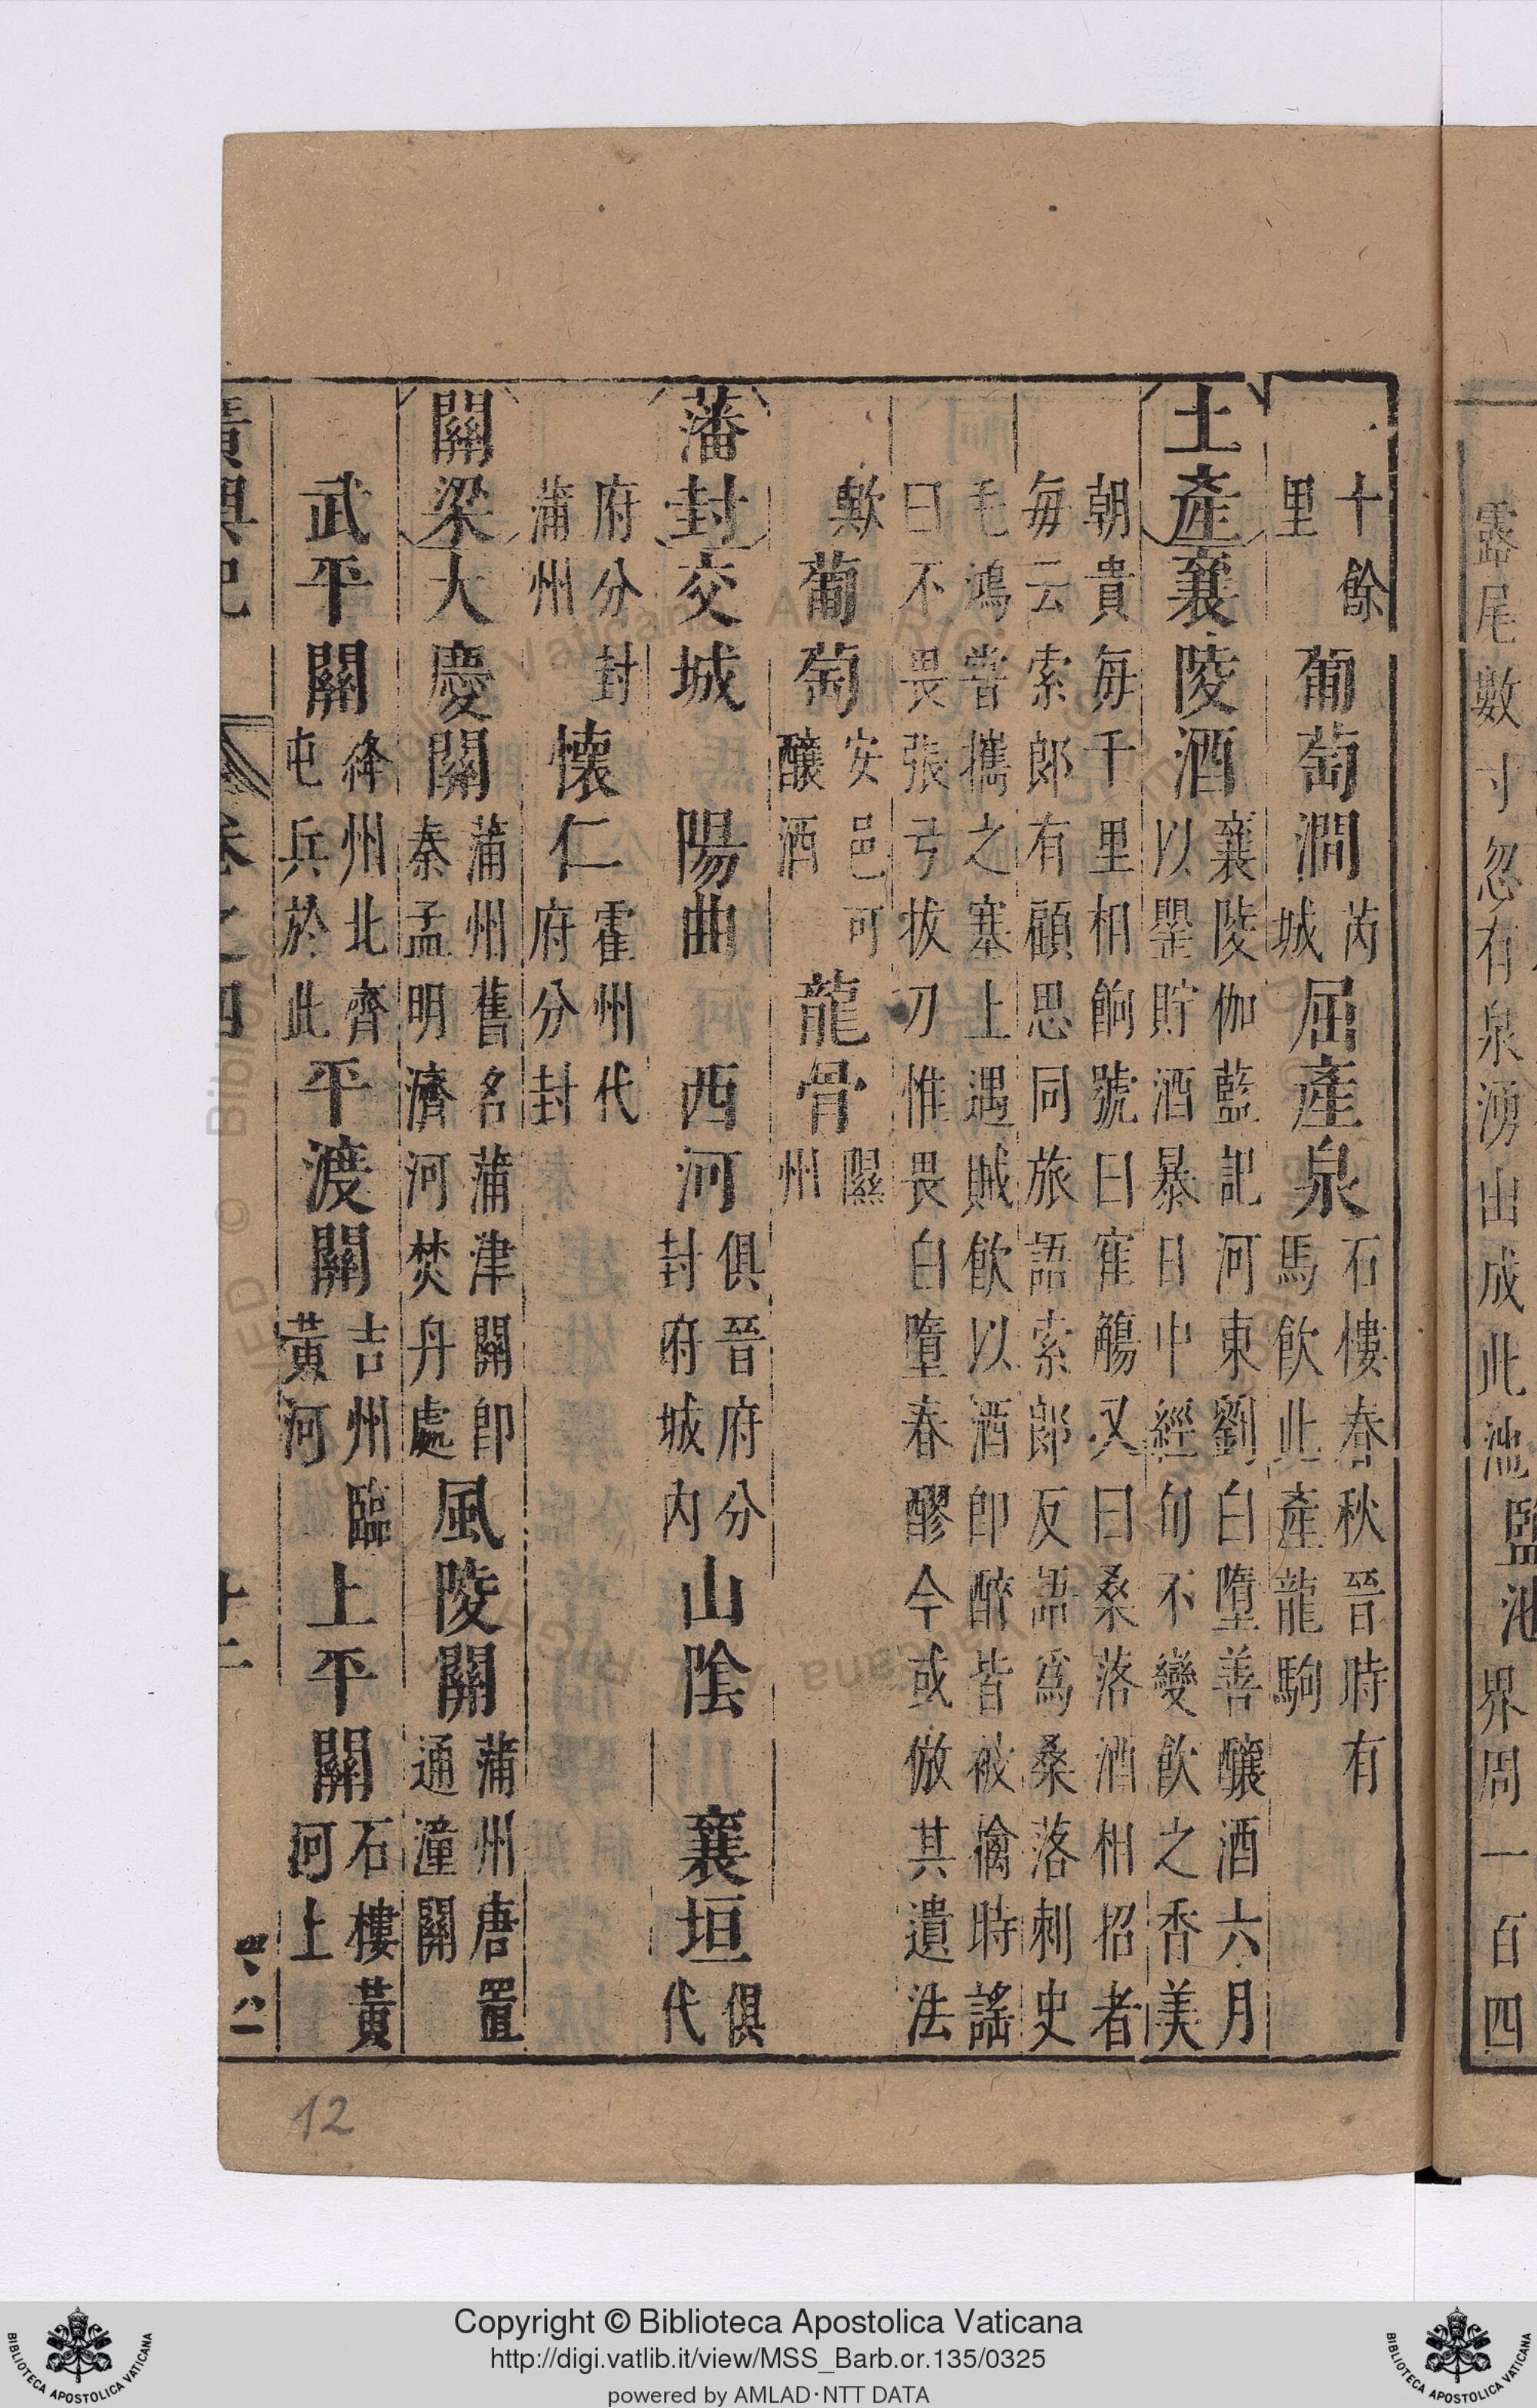 露尾數寸忽有泉湧出成此池鹽池界周一百四
十餘里葡萄澗芮城屈產泉石樓春秋晉時有馬飲此產龍駒
土產襄陵酒襄陵伽藍記河東劉白墮善釀酒六月以罌貯酒暴日中經旬不變飲之香美
朝貴每千里相餉號曰隺觴又曰桑落酒相招者每云索郎有顧思同旅語索郎反語爲桑落刺史
毛鴻嘗攜之塞上遇賊飲以酒即醉皆被擒時謠曰不畏張弓拔刀惟畏白墮春醪今或倣其遺法
歟葡萄安邑可釀酒龍骨隰州
藩封交城 陽曲 西河俱晉府分封府城内山陰 襄垣俱代
府分封蒲州懷仁霍州代府分封
關梁大慶關蒲州舊名蒲津關即秦孟明濟河焚舟處風陵關蒲州唐置通潼關
武平關絳州北齊屯兵於此平渡關吉州臨黃河上平關石樓黃河上
廣輿記 卷之四
12
Copyright © Biblioteca Apostolica Vaticana
http://digi.vatlib.it/view/MSS_Barb.or.135/0325
powered by AMLAD·NTT DATA
BIBLIOTECA APOSTOLICA VATICANA
BIBLIOTECA APOSTOLICA VATICANA